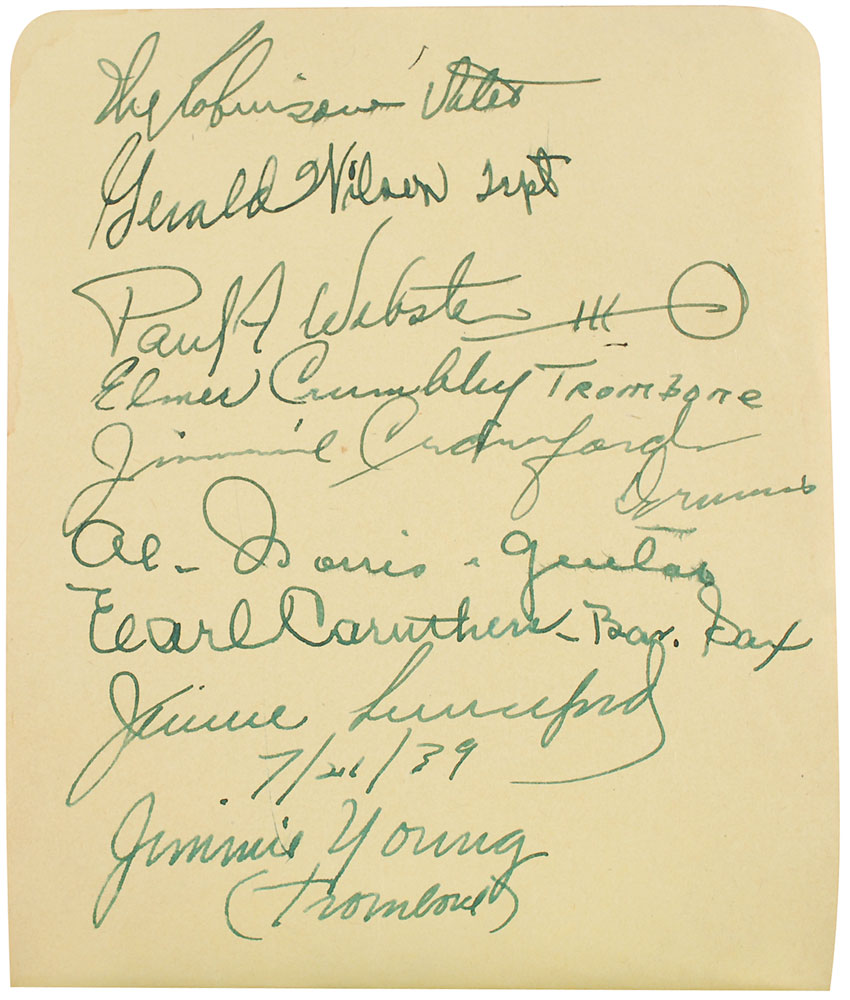 The Robinson
Gerald Wilson trpt
Paul Webster
Elmer Crumbley Trombone
Jimmie Crawford
Drums
Al - Norris - Guitar
Earl Caruthers - Bar. Sax
Jimmie Lunceford
Jimmie Young
(Trombone)